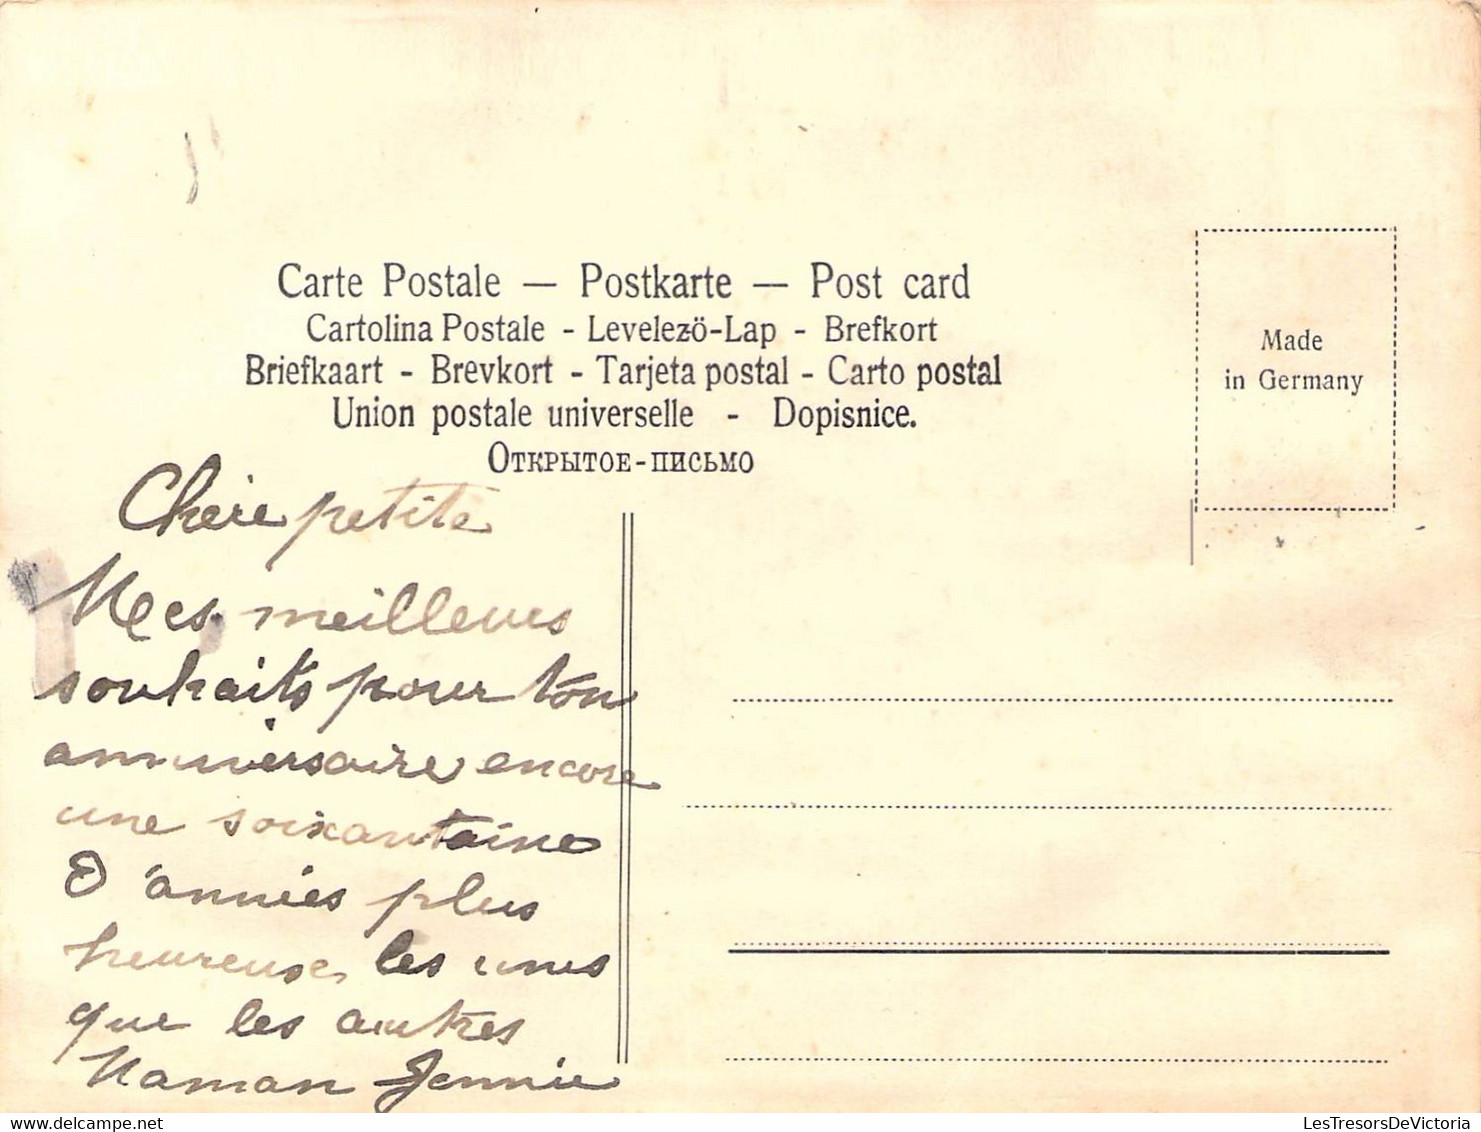 Carte Postale — Postkarte — Post card
Cartolina Postale - Levelezö-Lap - Brefkort
Briefkaart - Brevkort - Tarjeta postal - Carto postal
Union postale universelle - Dopisnice.
Открытое-письмо
Made
in Germany
Chere petite
Mes meilleurs
souhaits pour ton
anniversaire encore
une soixantaine
d'années plus
heureuses les unes
que les autres
Maman Jennie
LesTresorsDeVictoria